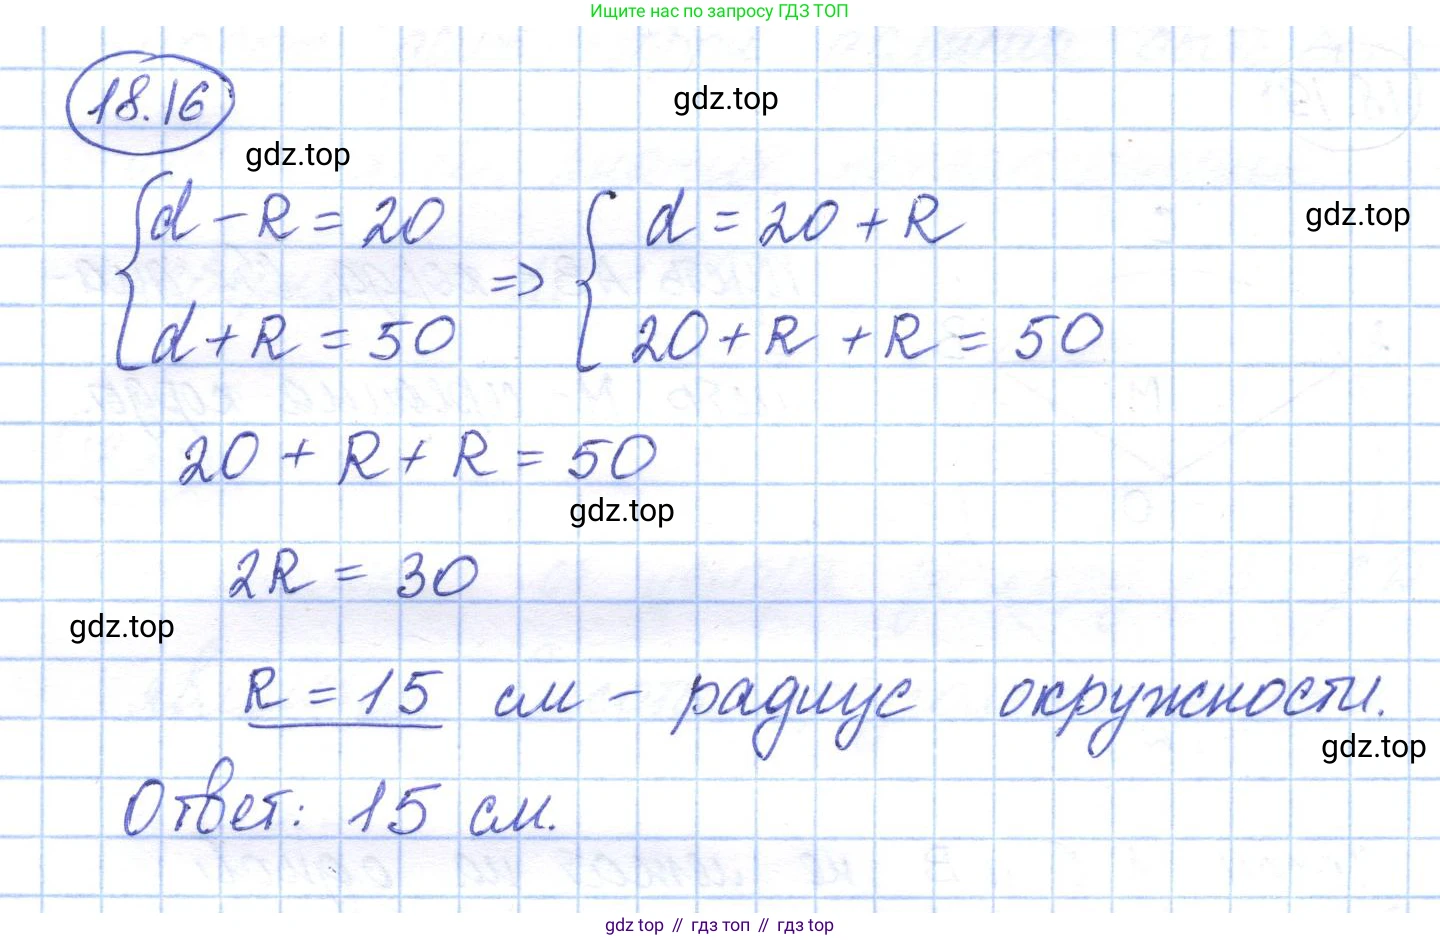 Ищите нас по запросу ГДЗ ТОП
18.16
gdz.top
gdz.top
gdz.top
{ d - R = 20 => { d = 20 + R
d + R = 50 20 + R + R = 50
20 + R + R = 50
gdz.top
2R = 30
gdz.top
R = 15 см - радиус окружности.
gdz.top
Ответ: 15 см.
gdz top // гдз топ // gdz top